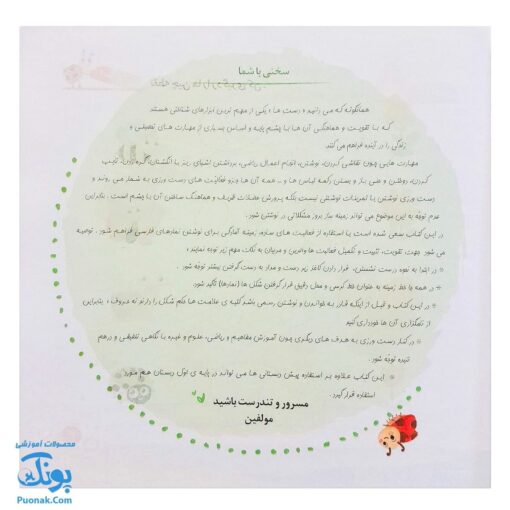 سخنی با شما
همانگونه که می دانید « دست ها » یکی از مهم ترین ابزارهای شناختی هستند
که با تقویت و هماهنگی آن ها با چشم پایه و اساس بسیاری از مهارت های تحصیلی و
زندگی را در آینده فراهم می کند
مهارت هایی چون نقاشی کردن، نوشتن، انجام اعمال ریاضی، برداشتن اشیای ریز با انگشتان، گره زدن، تایپ
کردن، دوختن و حتی باز و بستن دکمه لباس ها و ... همه آن ها جزو فعالیت های دست ورزی به شمار می روند و
دست ورزی نوشتن یا تمرینات نوشتنی نیست بلکه پرورش عضلات ظریف و هماهنگ ساختن آن با چشم است . بنابراین
عدم توجه به این موضوع می تواند زمینه ساز بروز مشکلاتی در نوشتن شود .
در این کتاب سعی شده است با استفاده از فعالیت های ساده، زمینه آمادگی برای نوشتن نمادهای فارسی فراهم شود . توصیه
می شود جهت تقویت، تثبیت و تکمیل فعالیت ها والدین و مربیان به نکات مهم زیر توجه نمایند :
در ابتدا به نحوه درست نشستن، قرار دادن کاغذ زیر دست و مداد به دست گرفتن بیشتر توجه شود
در همه جا خط زمینه به عنوان خط کرسی و محل دقیق قرار گرفتن شکل ها (نمادها) تأکید شود.
در این کتاب و قبل از اینکه قادر به خواندن و نوشتن رسمی باشد کلیه ی علامت ها حکم شکل را دارند نه حروف ؛ بنابراین
از نامگذاری آن ها خودداری کنید
در کنار دست ورزی به هدف های دیگری چون آموزش مفاهیم و ریاضی، علوم و غیره با نگاهی تلفیقی و درهم
تنیده توجه شود .
این کتاب علاوه بر استفاده پیش دبستانی ها می تواند در پایه ی اول دبستان هم مورد
استفاده قرار گیرد.
مسرور و تندرست باشید
مولفین
محصولات آموزشی
پونک
Puonak.Com